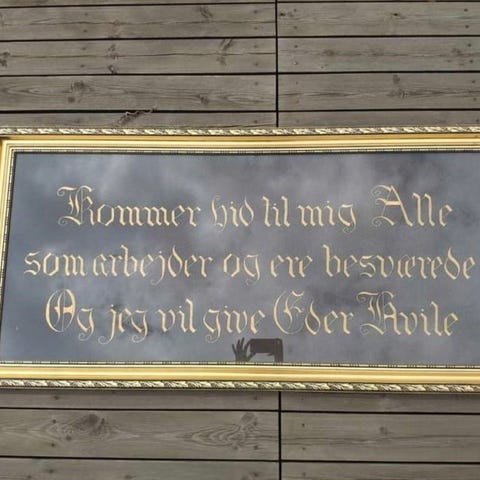 Kommer hid til mig Alle
som arbejder og ere besværede
Og jeg vil give Eder Hvile